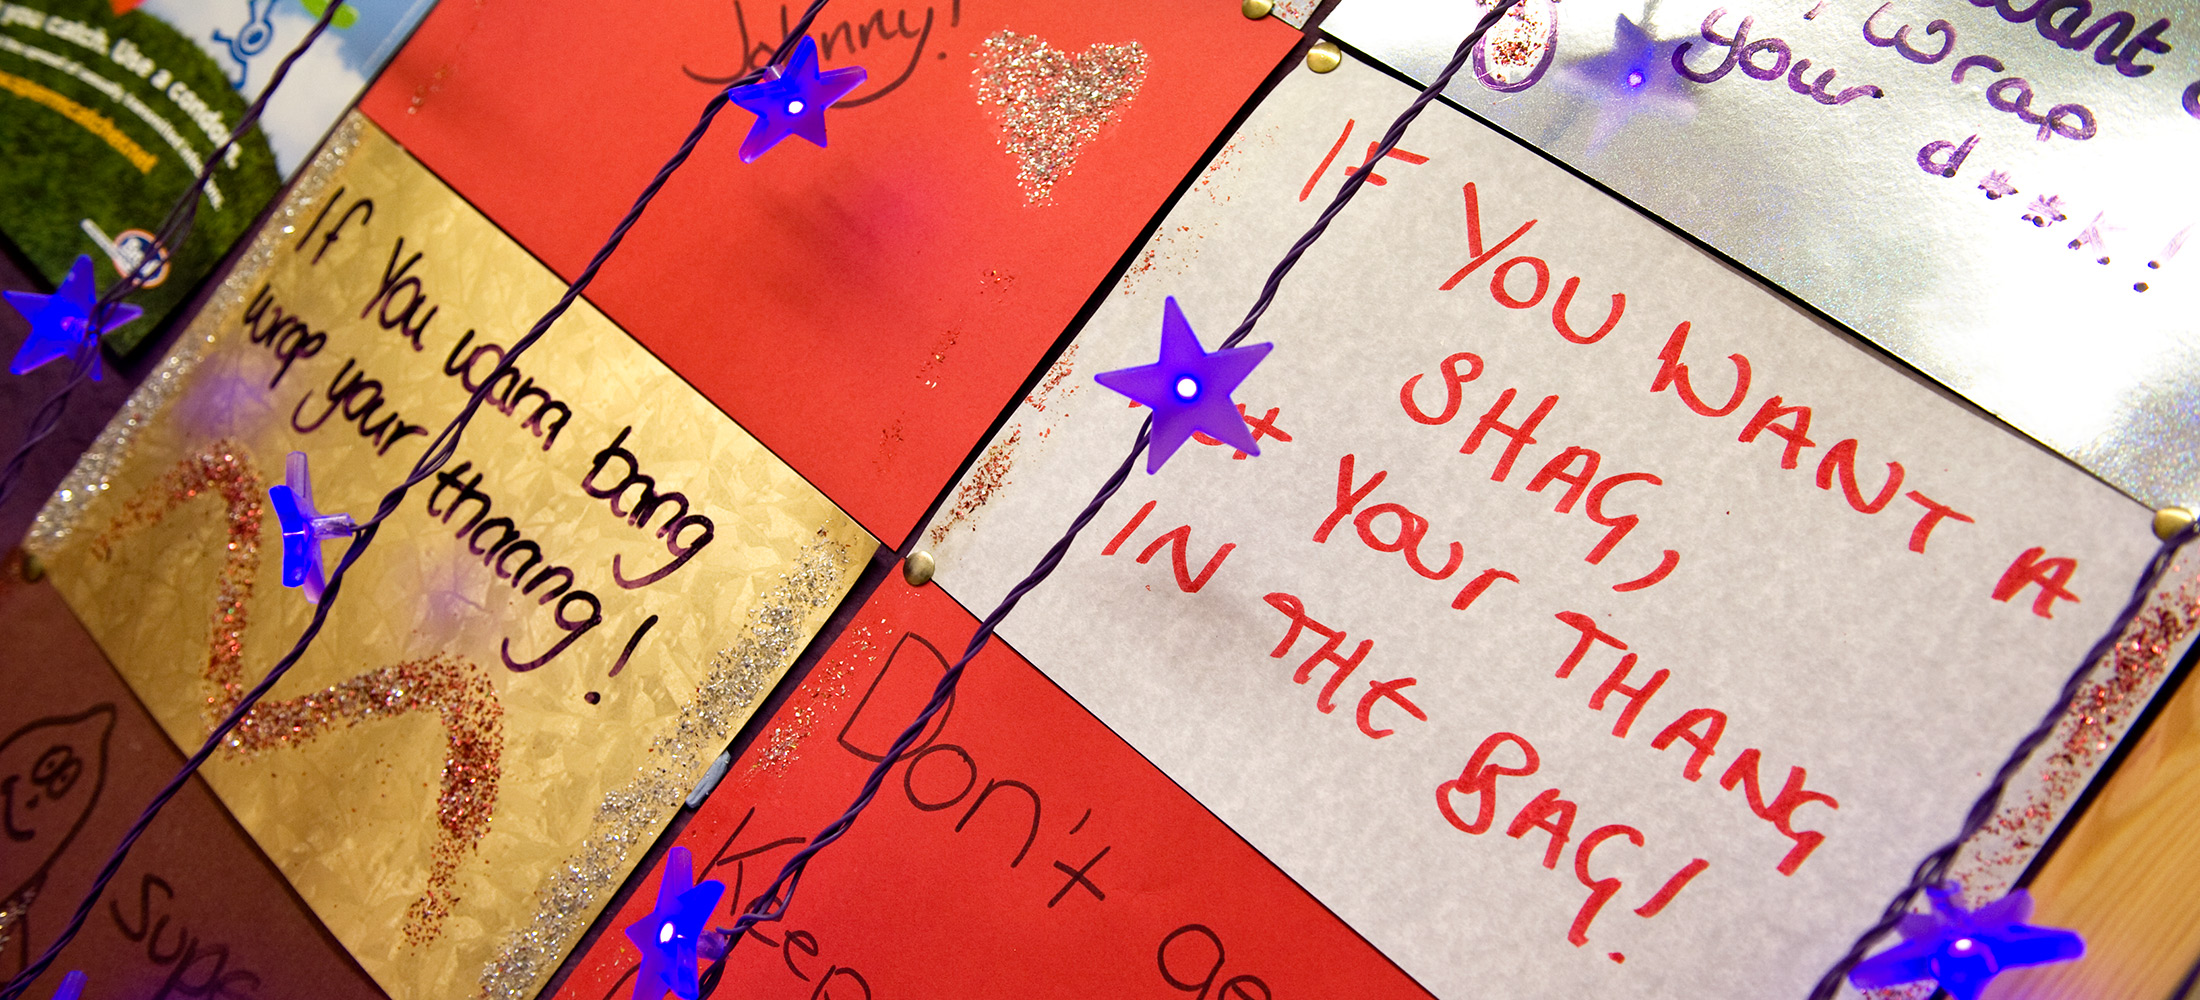 you catch. Use a condom.
Johnny!
want a
wrap
your
d**k!
If You wana bang
wrap your thaang!
IF YOU WANT A
SHAG,
YOUR THANG
IN THE BAG!
Don't
Keep